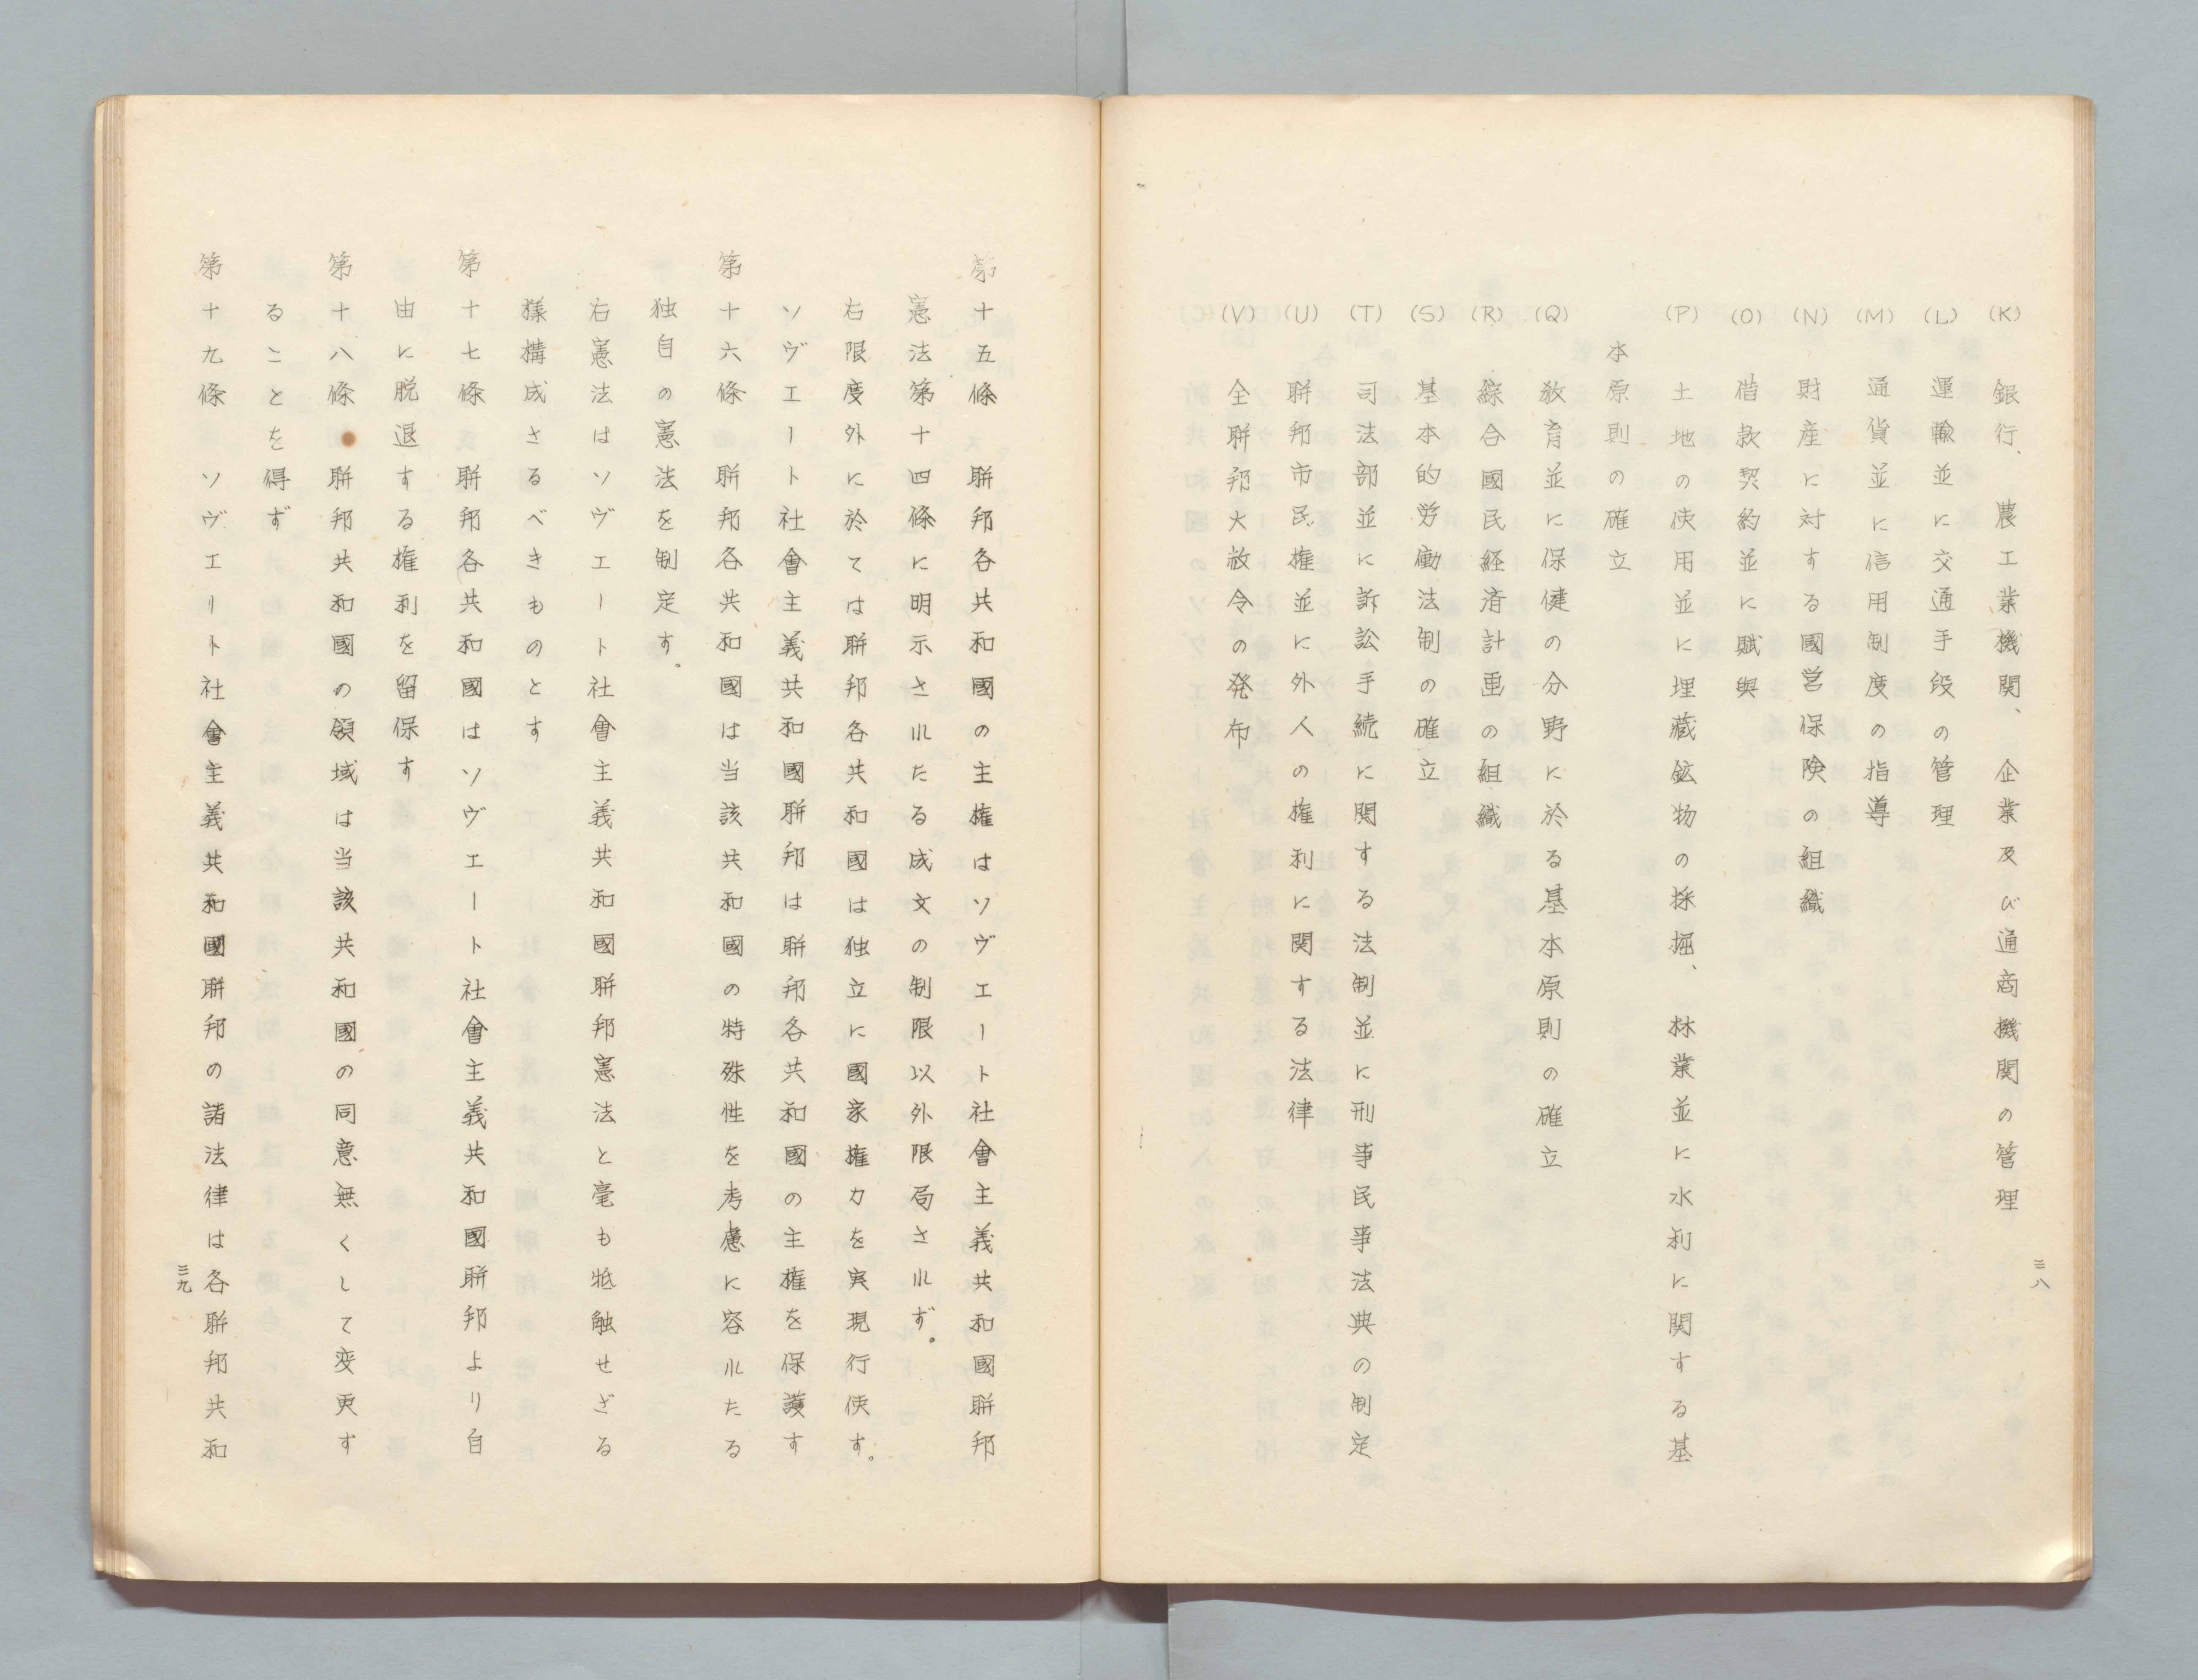 (K) 銀行、農工業機関、企業及び通商機関の管理
(L) 運輸並に交通手段の管理
(M) 通貨並に信用制度の指導
(N) 財産に対する國営保険の組織
(O) 借款契約並に賦與
(P) 土地の使用並に埋藏鉱物の採掘、林業並に水利に関する基
本原則の確立
(Q) 教育並に保健の分野に於る基本原則の確立
(R) 綜合國民経済計画の組織
(S) 基本的労働法制の確立
(T) 司法部並に訴訟手続に関する法制並に刑事民事法典の制定
(U) 聨邦市民権並に外人の権利に関する法律
(V) 全聨邦大赦令の発布
三八
第十五條 聨邦各共和國の主権はソヴエート社會主義共和國聨邦
憲法第十四條に明示されたる成文の制限以外限局されず。
右限度外に於ては聨邦各共和國は独立に國家権力を実現行使す。
ソヴエート社會主義共和國聨邦は聨邦各共和國の主権を保護す
第十六條 聨邦各共和國は当該共和國の特殊性を考慮に容れたる
独自の憲法を制定す。
右憲法はソヴエート社會主義共和國聨邦憲法と毫も牴触せざる
様構成さるべきものとす
第十七條 聨邦各共和國はソヴエート社會主義共和國聨邦より自
由に脱退する権利を留保す
第十八條 聨邦共和國の領域は当該共和國の同意無くして変更す
ることを得ず
第十九條 ソヴエート社會主義共和國聨邦の諸法律は各聨邦共和
三九